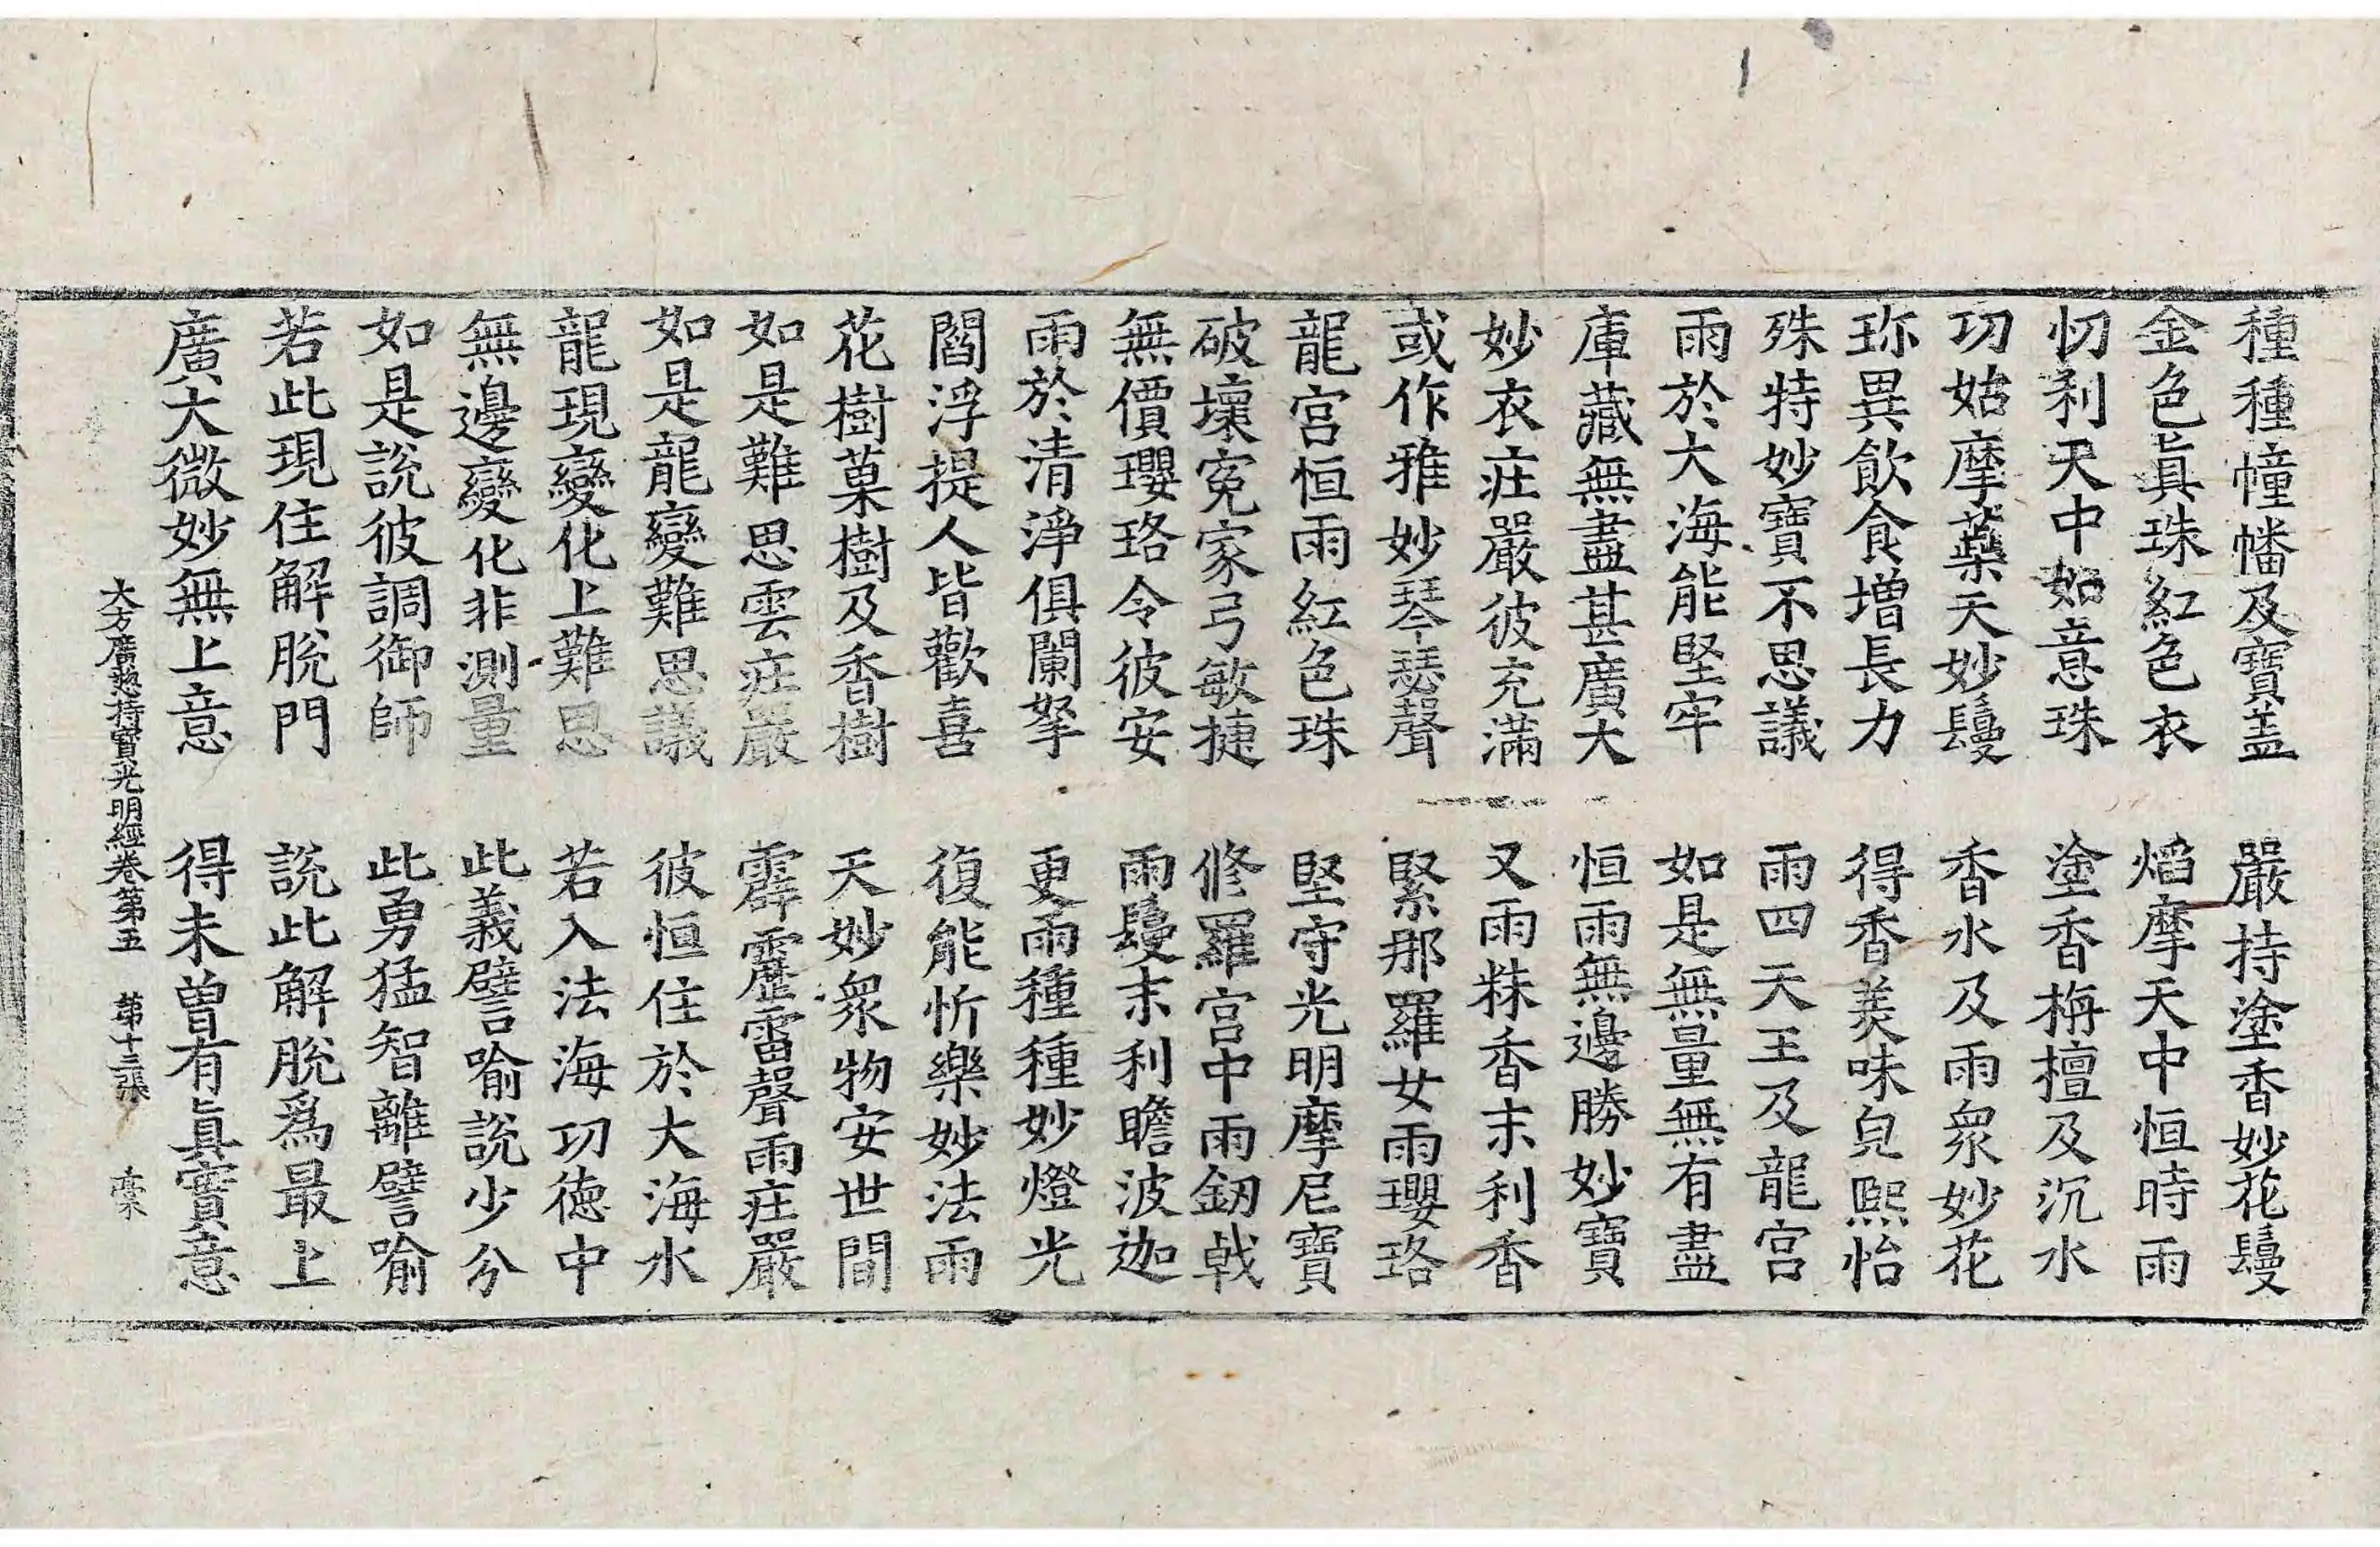 種種幢幡及寶盖　嚴持塗香妙花鬘
金色眞珠紅色衣　焰摩天中恒時雨
忉利天中如意珠　塗香栴檀及沉水
功姑摩蘂天妙鬘　香水及雨衆妙花
珎異飲食增長力　得香美味皃熈怡
殊特妙寶不思議　雨四天王及龍宮
雨於大海能堅牢　如是無量無有盡
庫藏無盡甚廣大　恒雨無邊勝妙寶
妙衣庄嚴彼充滿　又雨粖香末利香
或作雅妙琴瑟聲　緊那羅女雨瓔珞
龍宮恒雨紅色珠　堅守光明摩尼寶
破壞寃家弓敏捷　修羅宮中雨釰戟
無價瓔珞令彼安　雨鬘末利瞻波迦
雨於清淨俱闌拏　更雨種種妙燈光
閻浮提人皆歡喜　復能忻樂妙法雨
花樹菓樹及香樹　天妙衆物安世間
如是難思雲庄嚴　霹靂雷聲雨庄嚴
如是龍變難思議　彼恒住於大海水
龍現變化上難思　若入法海功德中
無邊變化非測量　此義譬喻說少分
如是說彼調御師　此勇猛智離譬喻
若此現住解脫門　說此解脫爲最上
廣大微妙無上意　得未曾有眞實意
大方廣揔持寶光明經卷第五　第十三張　稾